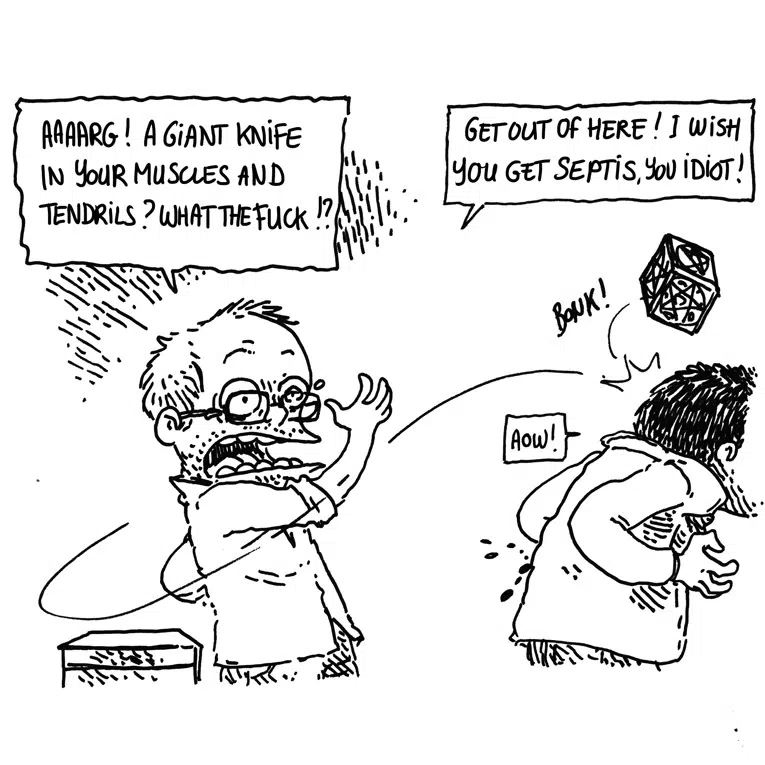 AAAARG! A GIANT KNIFE
IN YOUR MUSCLES AND
TENDRILS? WHAT THE FUCK!?
GET OUT OF HERE! I WISH
YOU GET SEPTIS, YOU IDIOT!
BONK!
AOW!